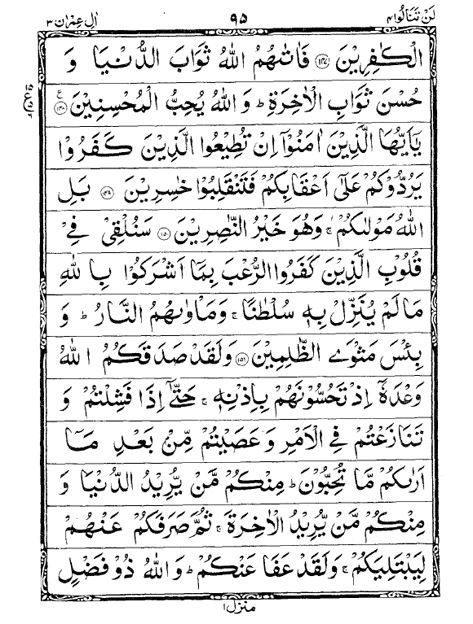 لَنْ تَنَالُوا ۴ ۹۵ اٰل عِمْرٰن ۳
الْكٰفِرِيْنَ ﴿۱۴۷﴾ فَاٰتٰىهُمُ اللّٰهُ ثَوَابَ الدُّنْيَا وَ
حُسْنَ ثَوَابِ الْاٰخِرَةِ ؕ وَاللّٰهُ يُحِبُّ الْمُحْسِنِيْنَ ﴿۱۴۸﴾ ع
يٰۤاَيُّهَا الَّذِيْنَ اٰمَنُوْۤا اِنْ تُطِيْعُوا الَّذِيْنَ كَفَرُوْا
يَرُدُّوْكُمْ عَلٰۤى اَعْقَابِكُمْ فَتَنْقَلِبُوْا خٰسِرِيْنَ ﴿۱۴۹﴾ بَلِ
اللّٰهُ مَوْلٰىكُمْ ۚ وَهُوَ خَيْرُ النّٰصِرِيْنَ ﴿۱۵۰﴾ سَنُلْقِيْ فِيْ
قُلُوْبِ الَّذِيْنَ كَفَرُوا الرُّعْبَ بِمَاۤ اَشْرَكُوْا بِاللّٰهِ
مَا لَمْ يُنَزِّلْ بِهٖ سُلْطٰنًا ۚ وَمَاْوٰىهُمُ النَّارُ ؕ وَ
بِئْسَ مَثْوَى الظّٰلِمِيْنَ ﴿۱۵۱﴾ وَلَقَدْ صَدَقَكُمُ اللّٰهُ
وَعْدَهٗۤ اِذْ تَحُسُّوْنَهُمْ بِاِذْنِهٖ ۚ حَتّٰۤى اِذَا فَشِلْتُمْ وَ
تَنَازَعْتُمْ فِي الْاَمْرِ وَعَصَيْتُمْ مِّنْۢ بَعْدِ مَاۤ
اَرٰىكُمْ مَّا تُحِبُّوْنَ ؕ مِنْكُمْ مَّنْ يُّرِيْدُ الدُّنْيَا وَ
مِنْكُمْ مَّنْ يُّرِيْدُ الْاٰخِرَةَ ۚ ثُمَّ صَرَفَكُمْ عَنْهُمْ
لِيَبْتَلِيَكُمْ ۚ وَلَقَدْ عَفَا عَنْكُمْ ؕ وَاللّٰهُ ذُوْ فَضْلٍ
منزل ۱